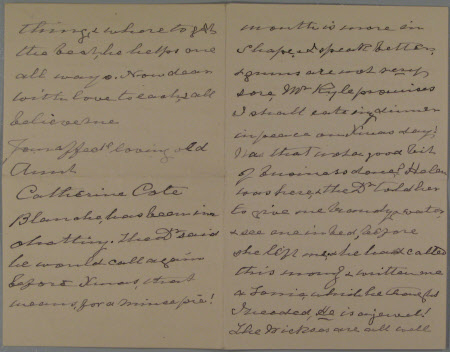 things & where to get
the best, he helps one
all ways. Now dear
with love to each & all
believe me
Your affect loving old
Aunt
Catherine Cate
Blanche, has been in
The Dr said
he would call again
before Xmas, that
means, for a mince pie!
mouth is more in
shape, & speak better,
& gums are not very
sore, Mr Kyle promises
I shall eat dinner
in peace on Xmas day!
that was a good bit
of business done! Helen
was here & the Dr told her
to give me brandy & water,
& see me in bed, before
she left me, he had called
this morng & written me
a Tonic, which he thought
I needed, He is a jewel!
The are all well